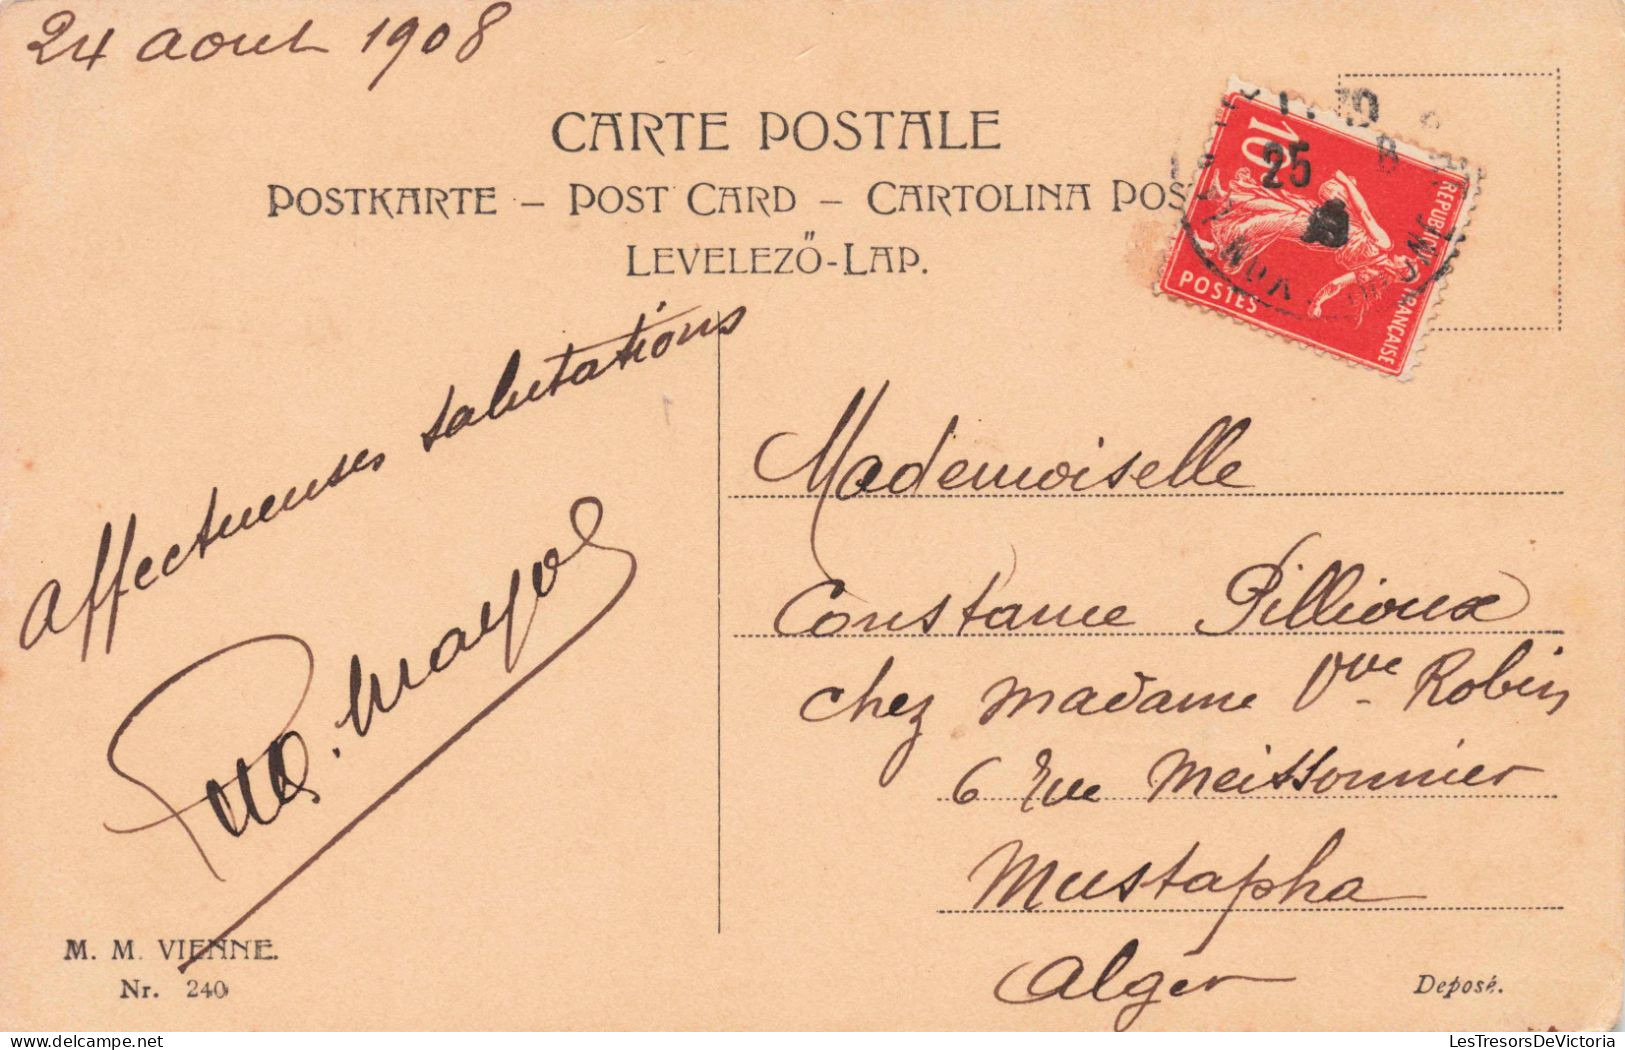 24 aout 1908
CARTE POSTALE
POSTKARTE – POST CARD – CARTOLINA POS
LEVELEZŐ-LAP.
10
25
REPUBLIQUE FRANÇAISE
POSTES
Affectueuses salutations
Mayol
Mademoiselle
Constance Pillioux
chez madame Vve Robin
6 rue Meissonnier
Mustapha
Alger
M. M. VIENNE.
Nr. 240
Deposé.
LesTresorsDeVictoria